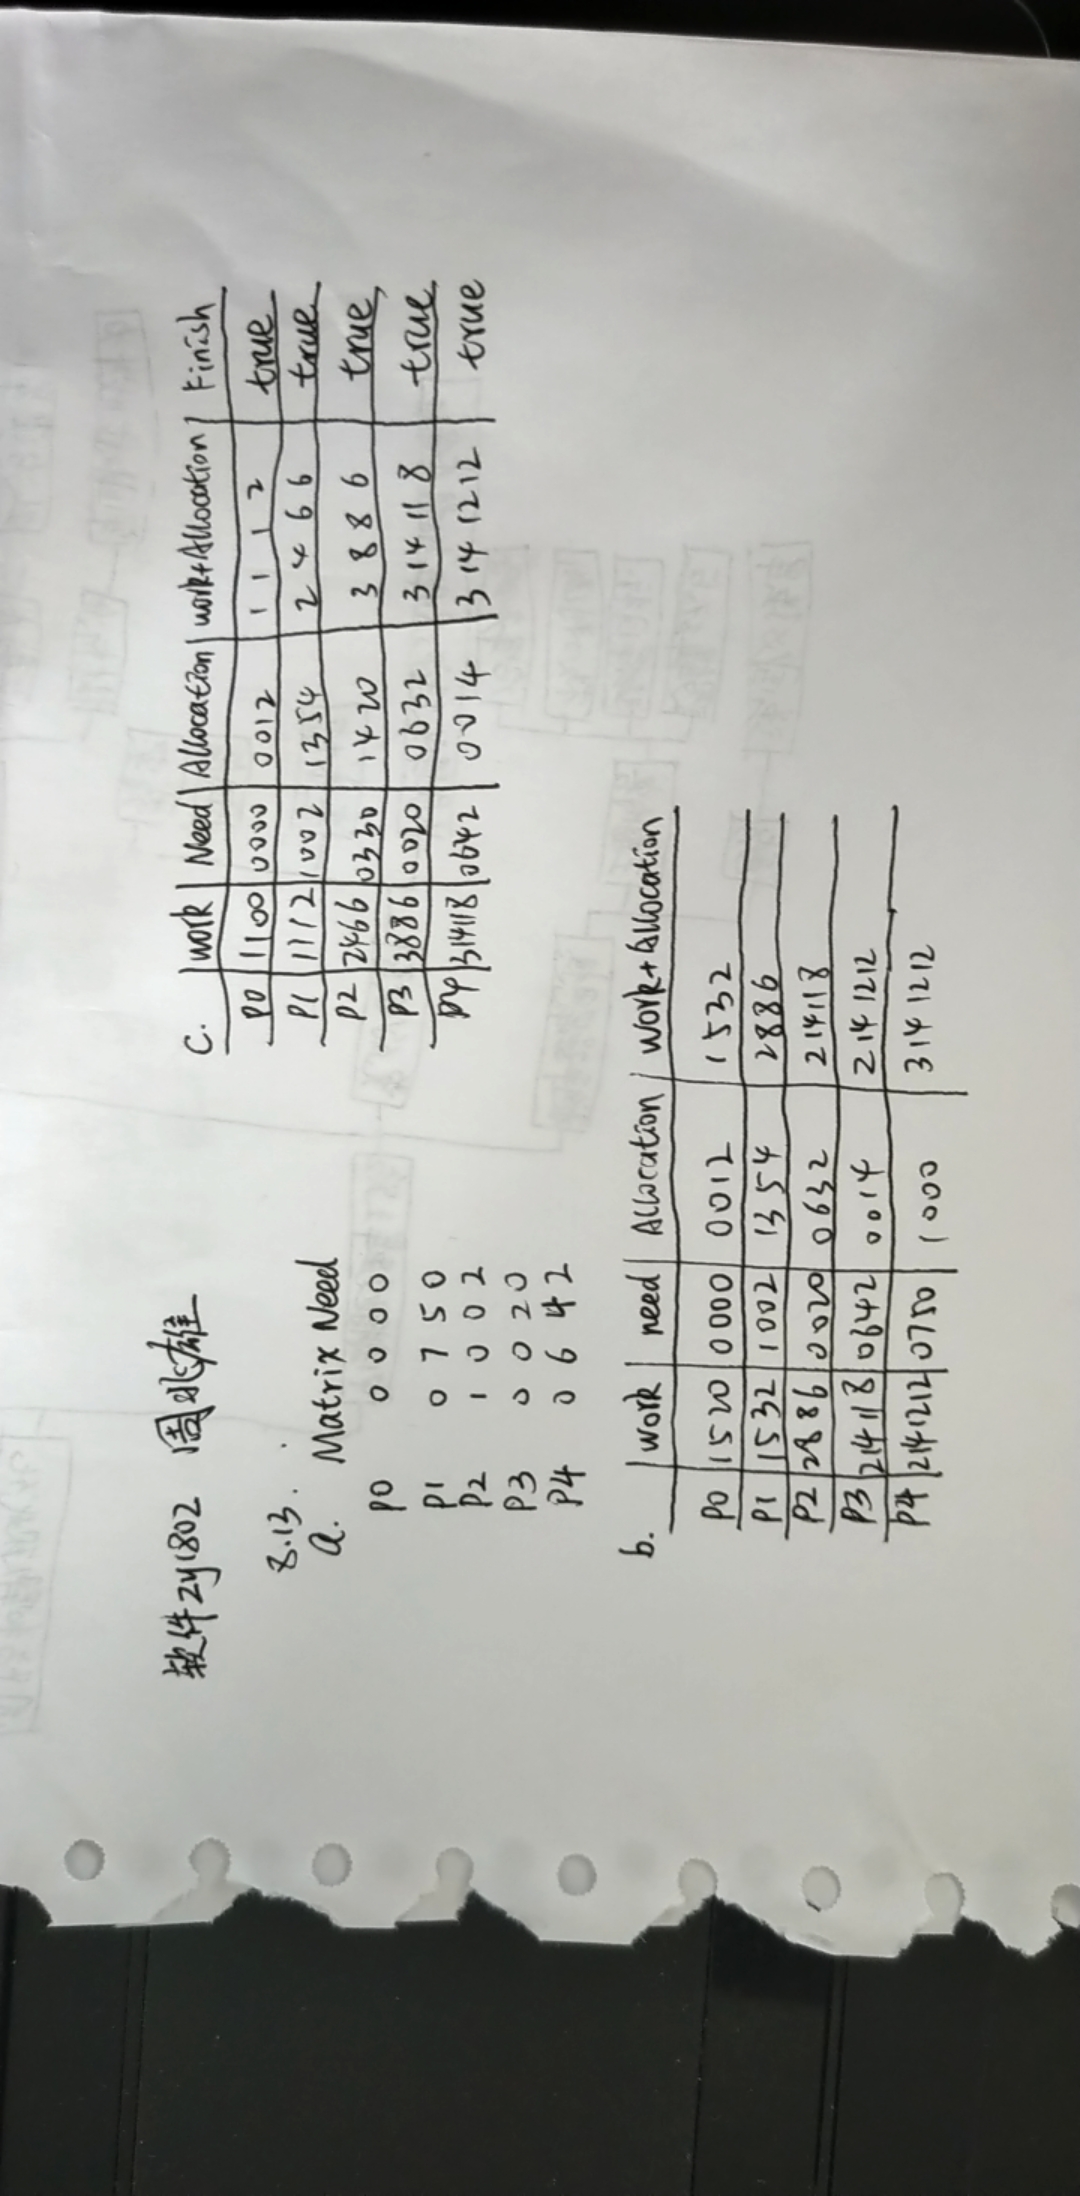 软件zy1802 周兆雄
8.13.
a. Matrix Need
P0 0 0 0 0
P1 0 7 5 0
P2 1 0 0 2
P3 0 0 2 0
P4 0 6 4 2
b. work need Allocation work+Allocation
P0 1520 0000 0012 1532
P1 1532 1002 1354 2886
P2 2886 0020 0632 214118
P3 214118 0642 0014 2141212
P4 2141212 0750 1000 3141212
c. work Need Allocation work+Allocation Finish
P0 1100 0000 0012 1 1 1 2 true
P1 1112 1002 1354 2 4 6 6 true
P2 2466 0330 1420 3 8 8 6 true
P3 3886 0020 0632 3 14 11 8 true
P4 314118 0642 0014 3 14 12 12 true